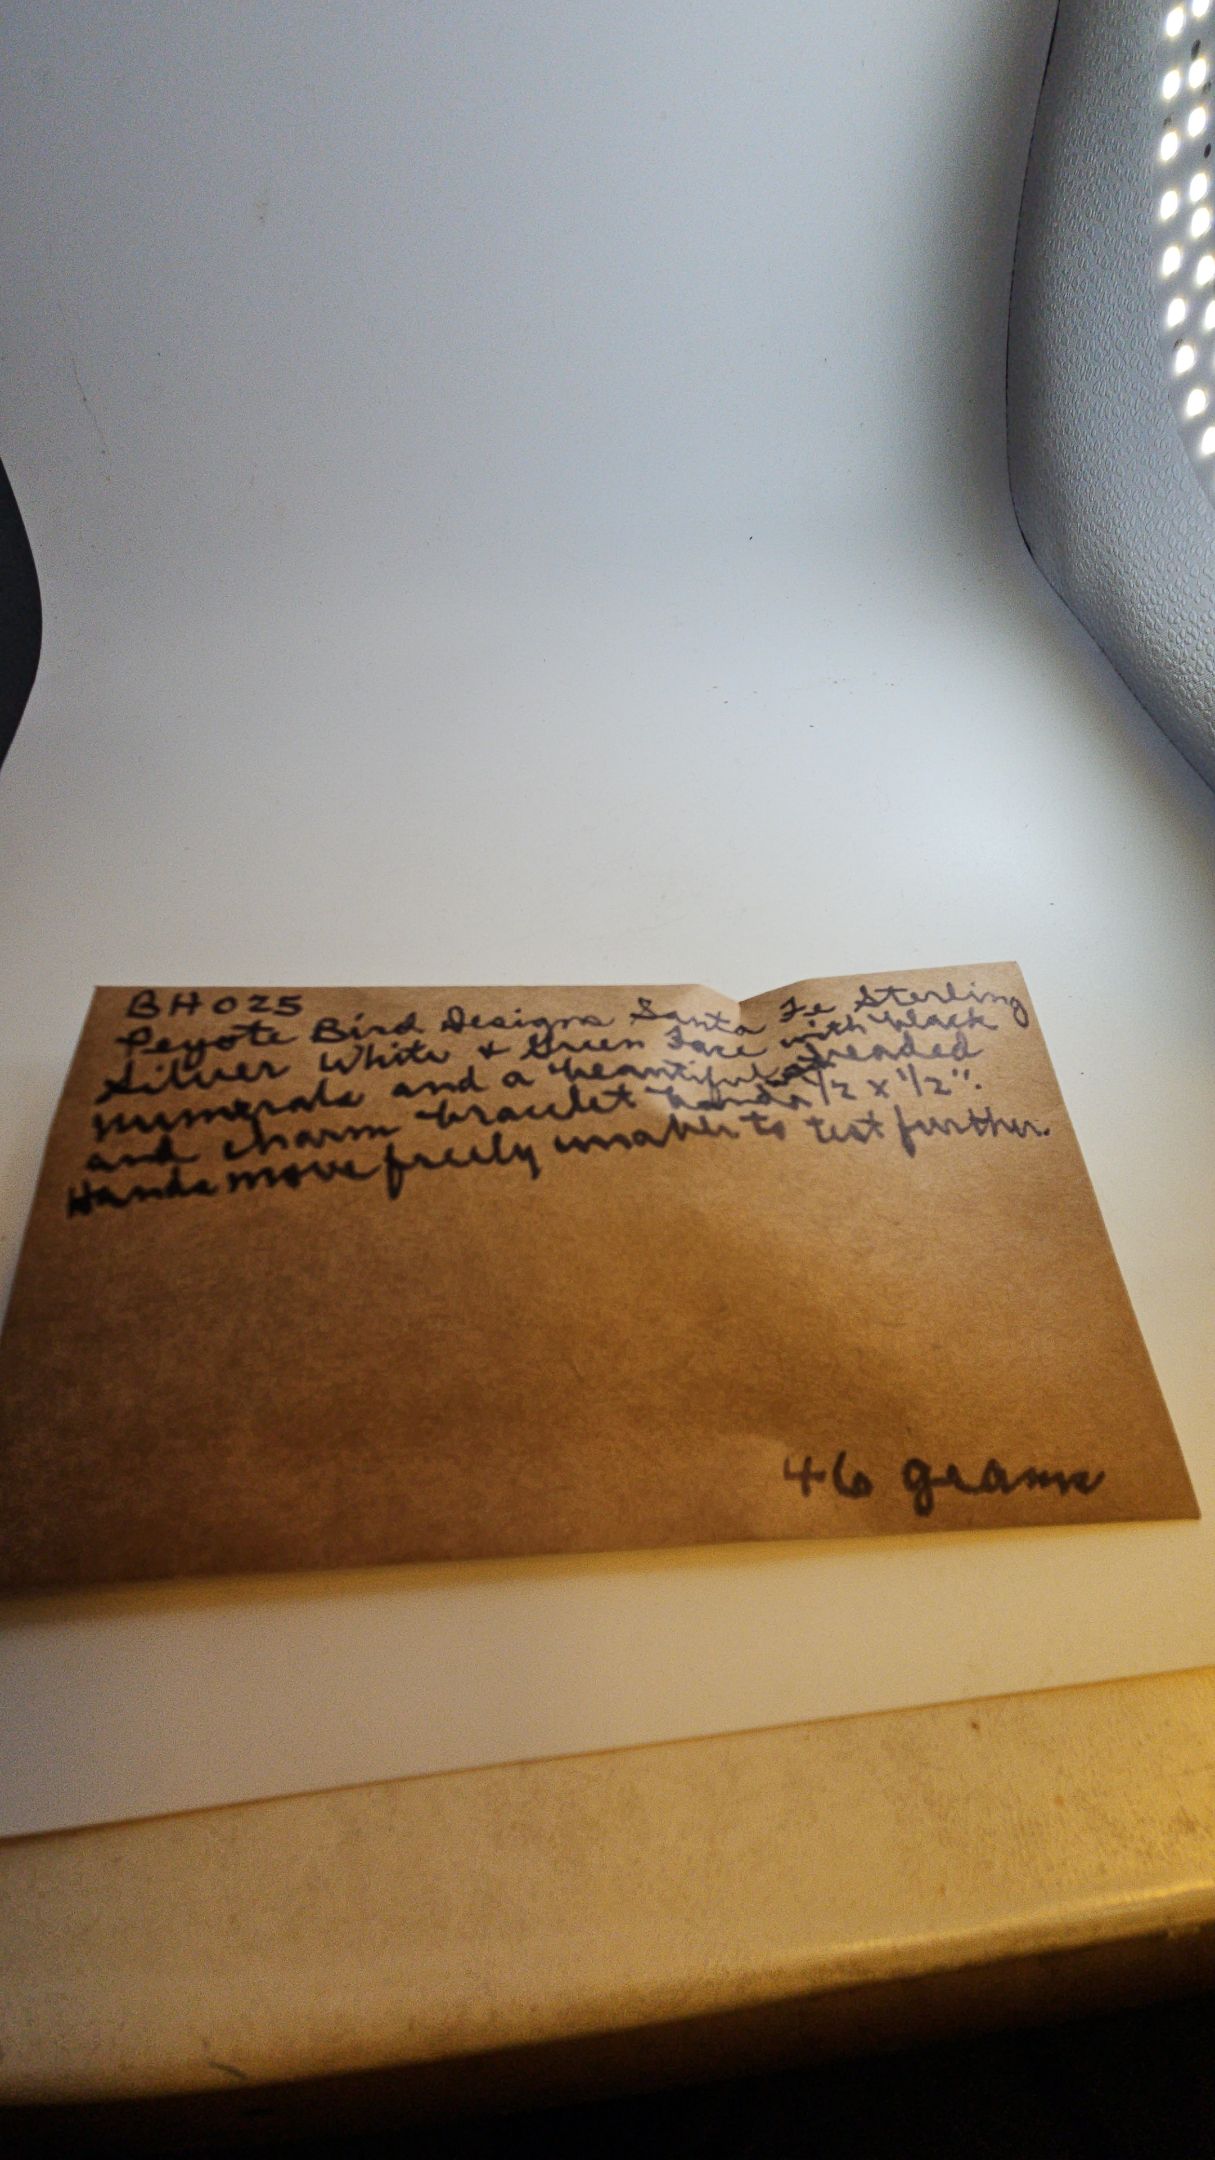 BH025
Peyote Bird Designs Santa Fe Sterling
Silver White & Green Face with black
numerals and a beautiful beaded
and charm bracelet bands 1/2 x 1/2".
Hands move freely unable to test further.
46 grams